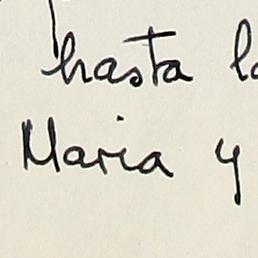 hasta
Maria y